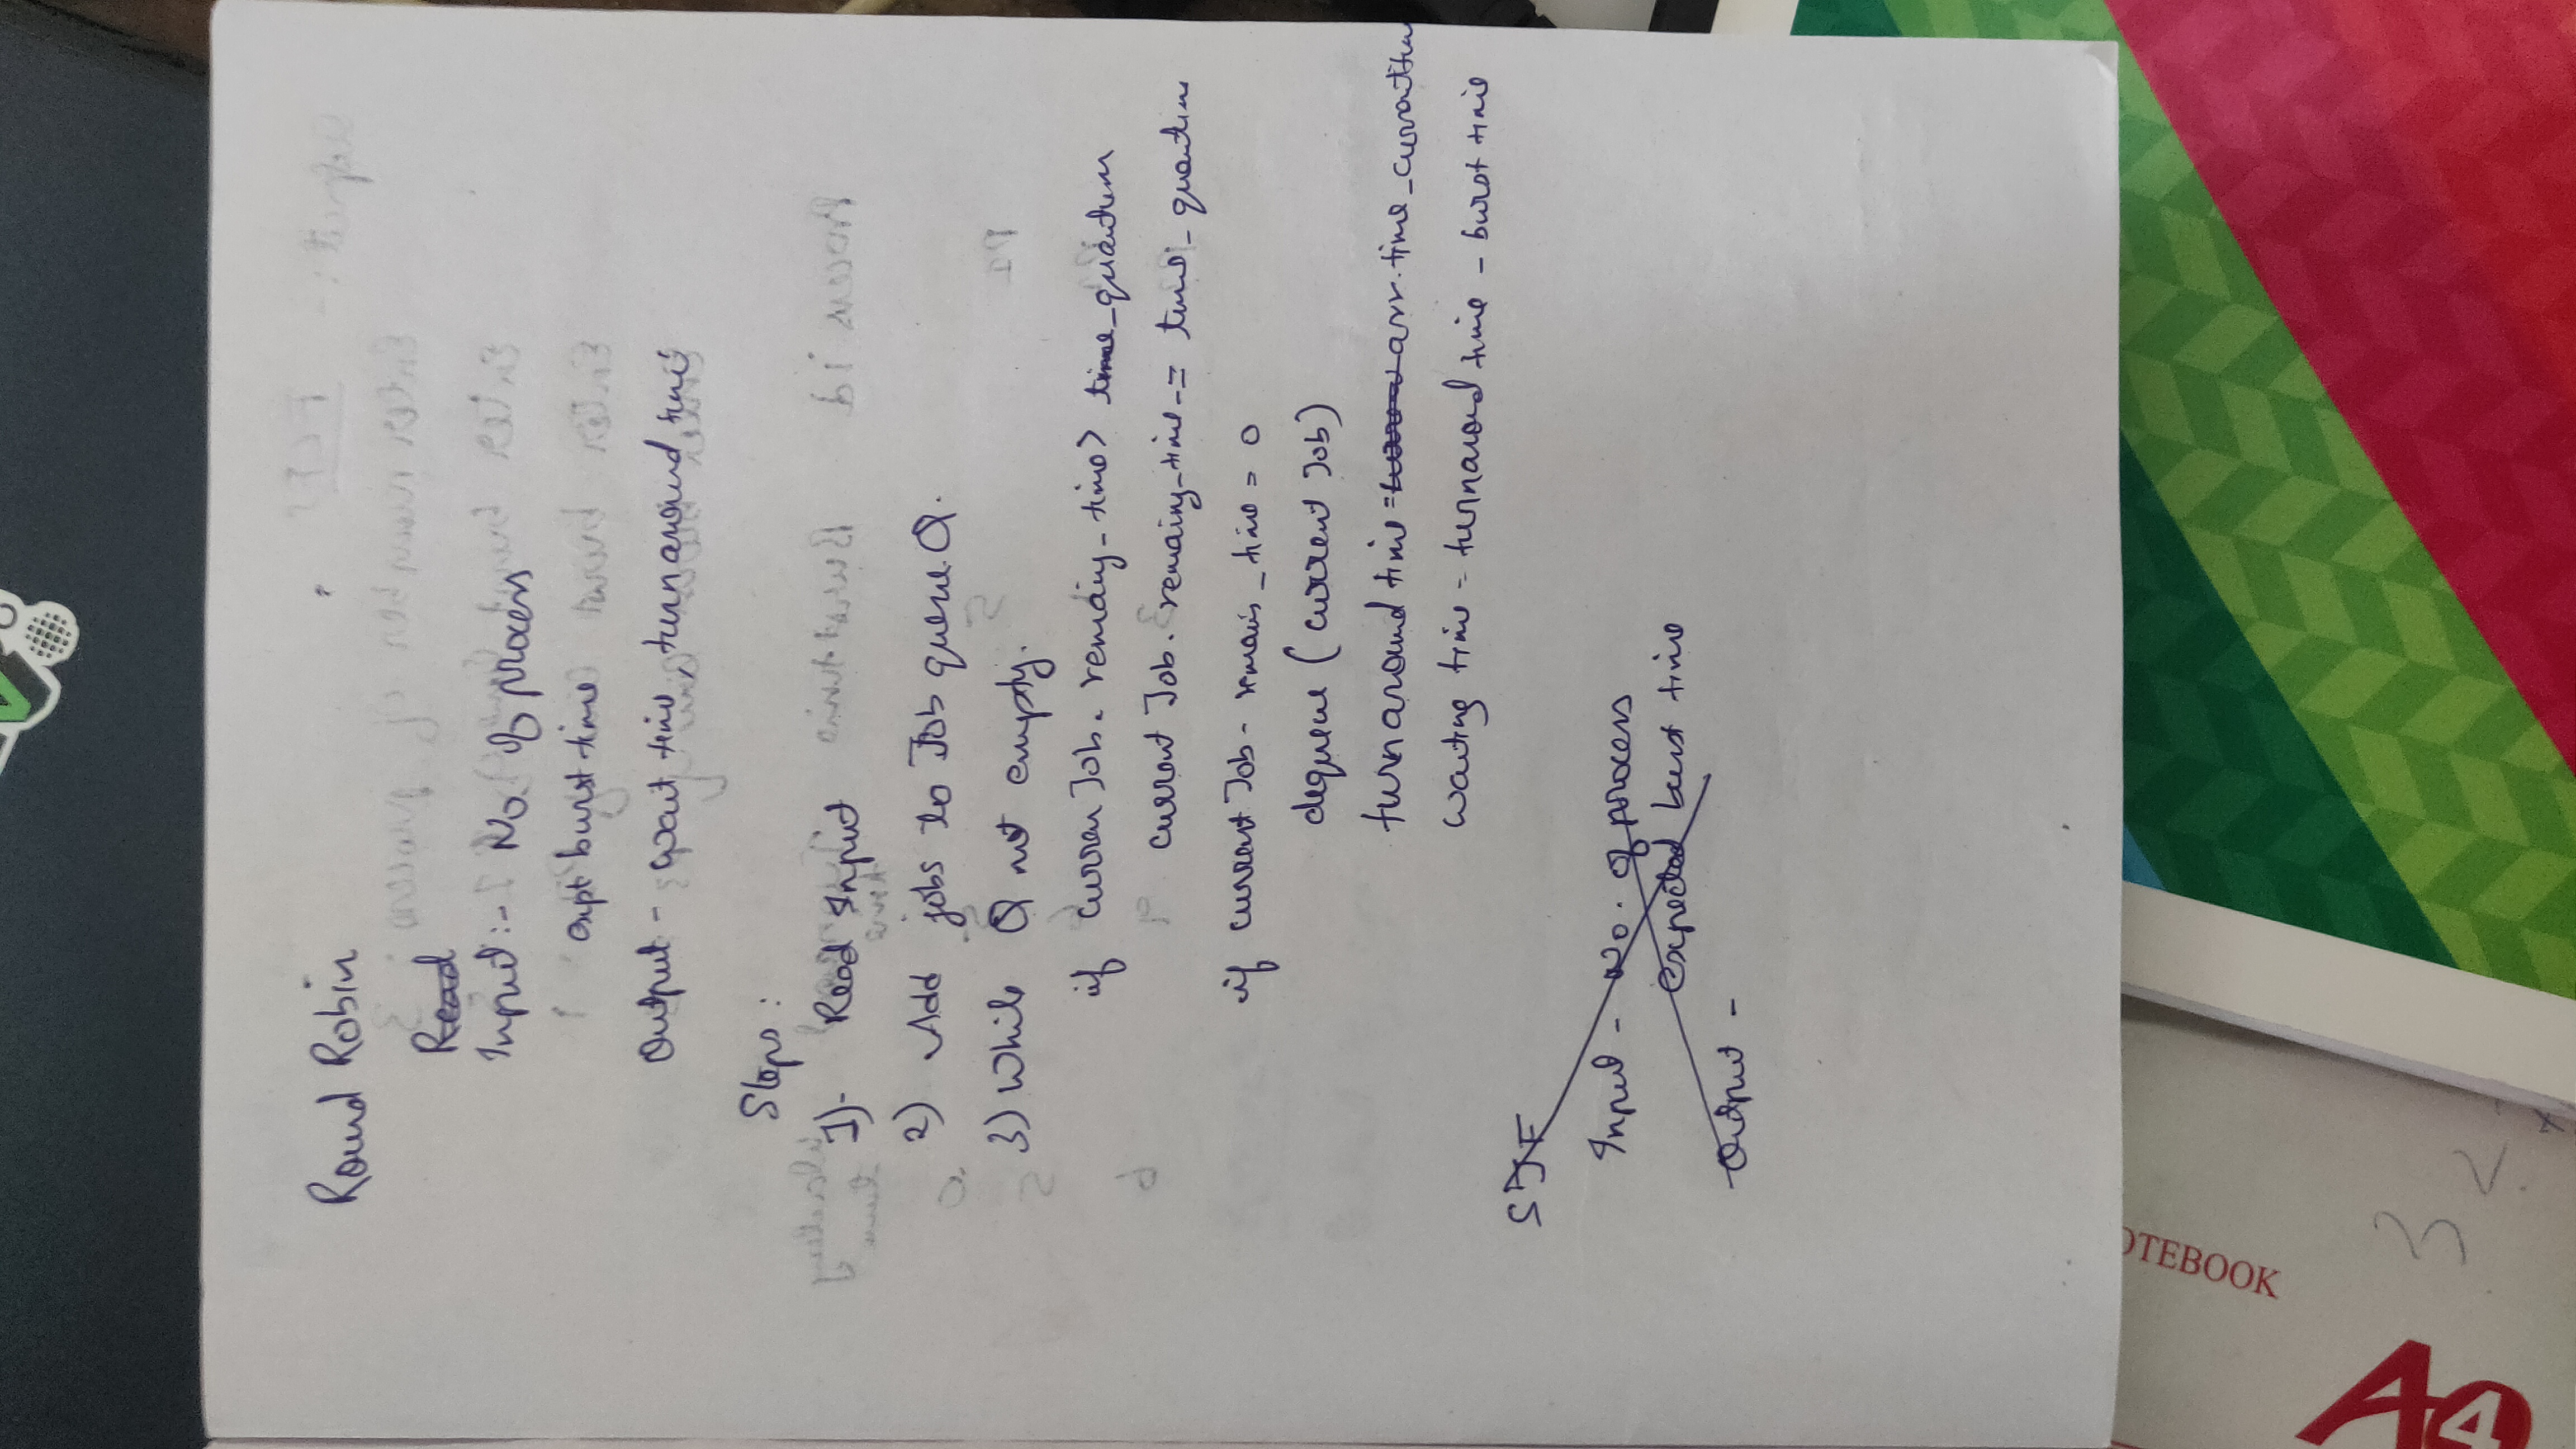 Round Robin
Read
Input :- No. of process
expt burst time
Output - wait time, turnaround time
Steps :
1)- Read Input
2) Add jobs to Job queue Q.
3) While Q not empty.
if curren Job. remaing_time > time_quantum
current Job. remaing_time -= time_quantum
if current Job - remain_time = 0
dequeue (current Job)
turnaround time = arr. time_current
waiting time = turnaround time - burst time
SJF
Input - No. of process
expected burst time
Output -
OTEBOOK
A4
3